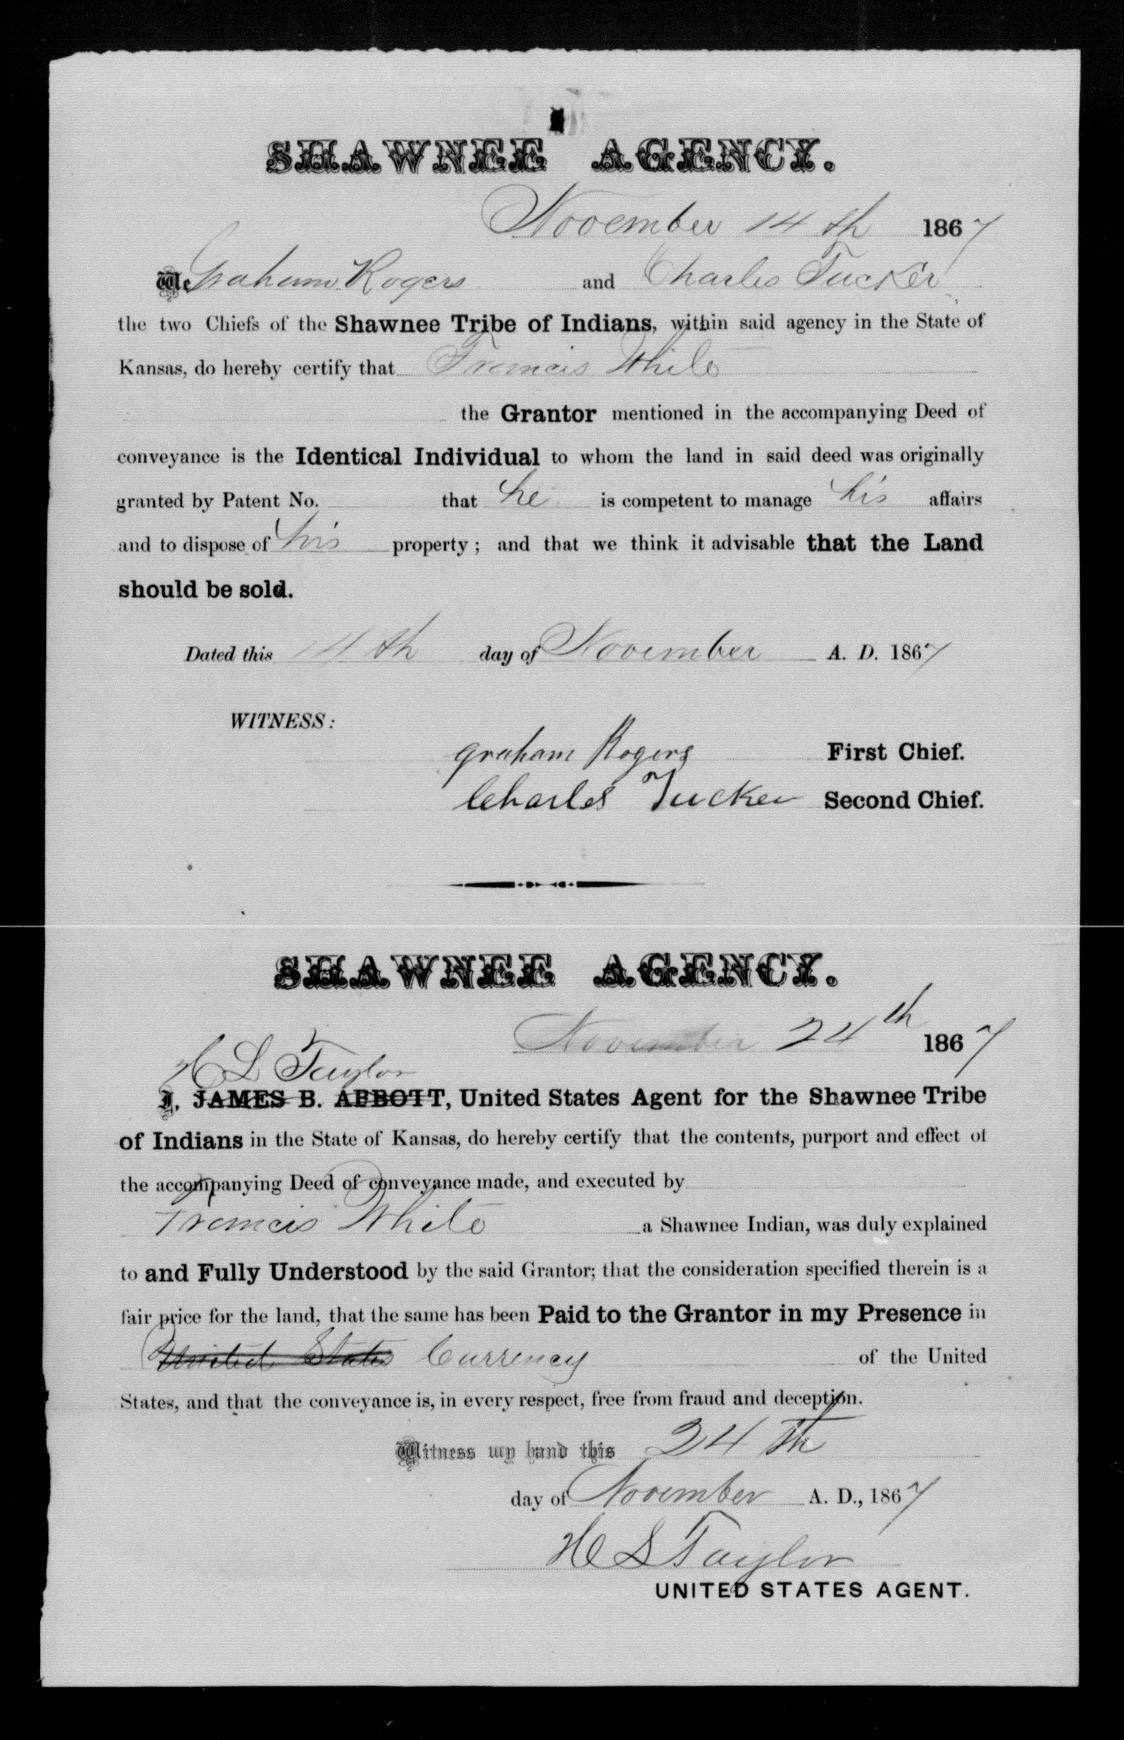 SHAWNEE AGENCY.
November 14th 1867
We Graham Rogers and Charles Tucker
the two Chiefs of the Shawnee Tribe of Indians, within said agency in the State of
Kansas, do hereby certify that Francis White
the Grantor mentioned in the accompanying Deed of
conveyance is the Identical Individual to whom the land in said deed was originally
granted by Patent No. that he is competent to manage his affairs
and to dispose of his property; and that we think it advisable that the Land
should be sold.
Dated this 14th day of November A. D. 1867
WITNESS:
Graham Rogers First Chief.
Charles Tucker Second Chief.
SHAWNEE AGENCY.
November 24th 1867
H L Taylor
I, JAMES B. ABBOTT, United States Agent for the Shawnee Tribe
of Indians in the State of Kansas, do hereby certify that the contents, purport and effect of
the accompanying Deed of conveyance made, and executed by
Francis White a Shawnee Indian, was duly explained
to and Fully Understood by the said Grantor; that the consideration specified therein is a
fair price for the land, that the same has been Paid to the Grantor in my Presence in
United States Currency of the United
States, and that the conveyance is, in every respect, free from fraud and deception.
Witness my hand this 24th
day of November A. D., 1867
H L Taylor
UNITED STATES AGENT.